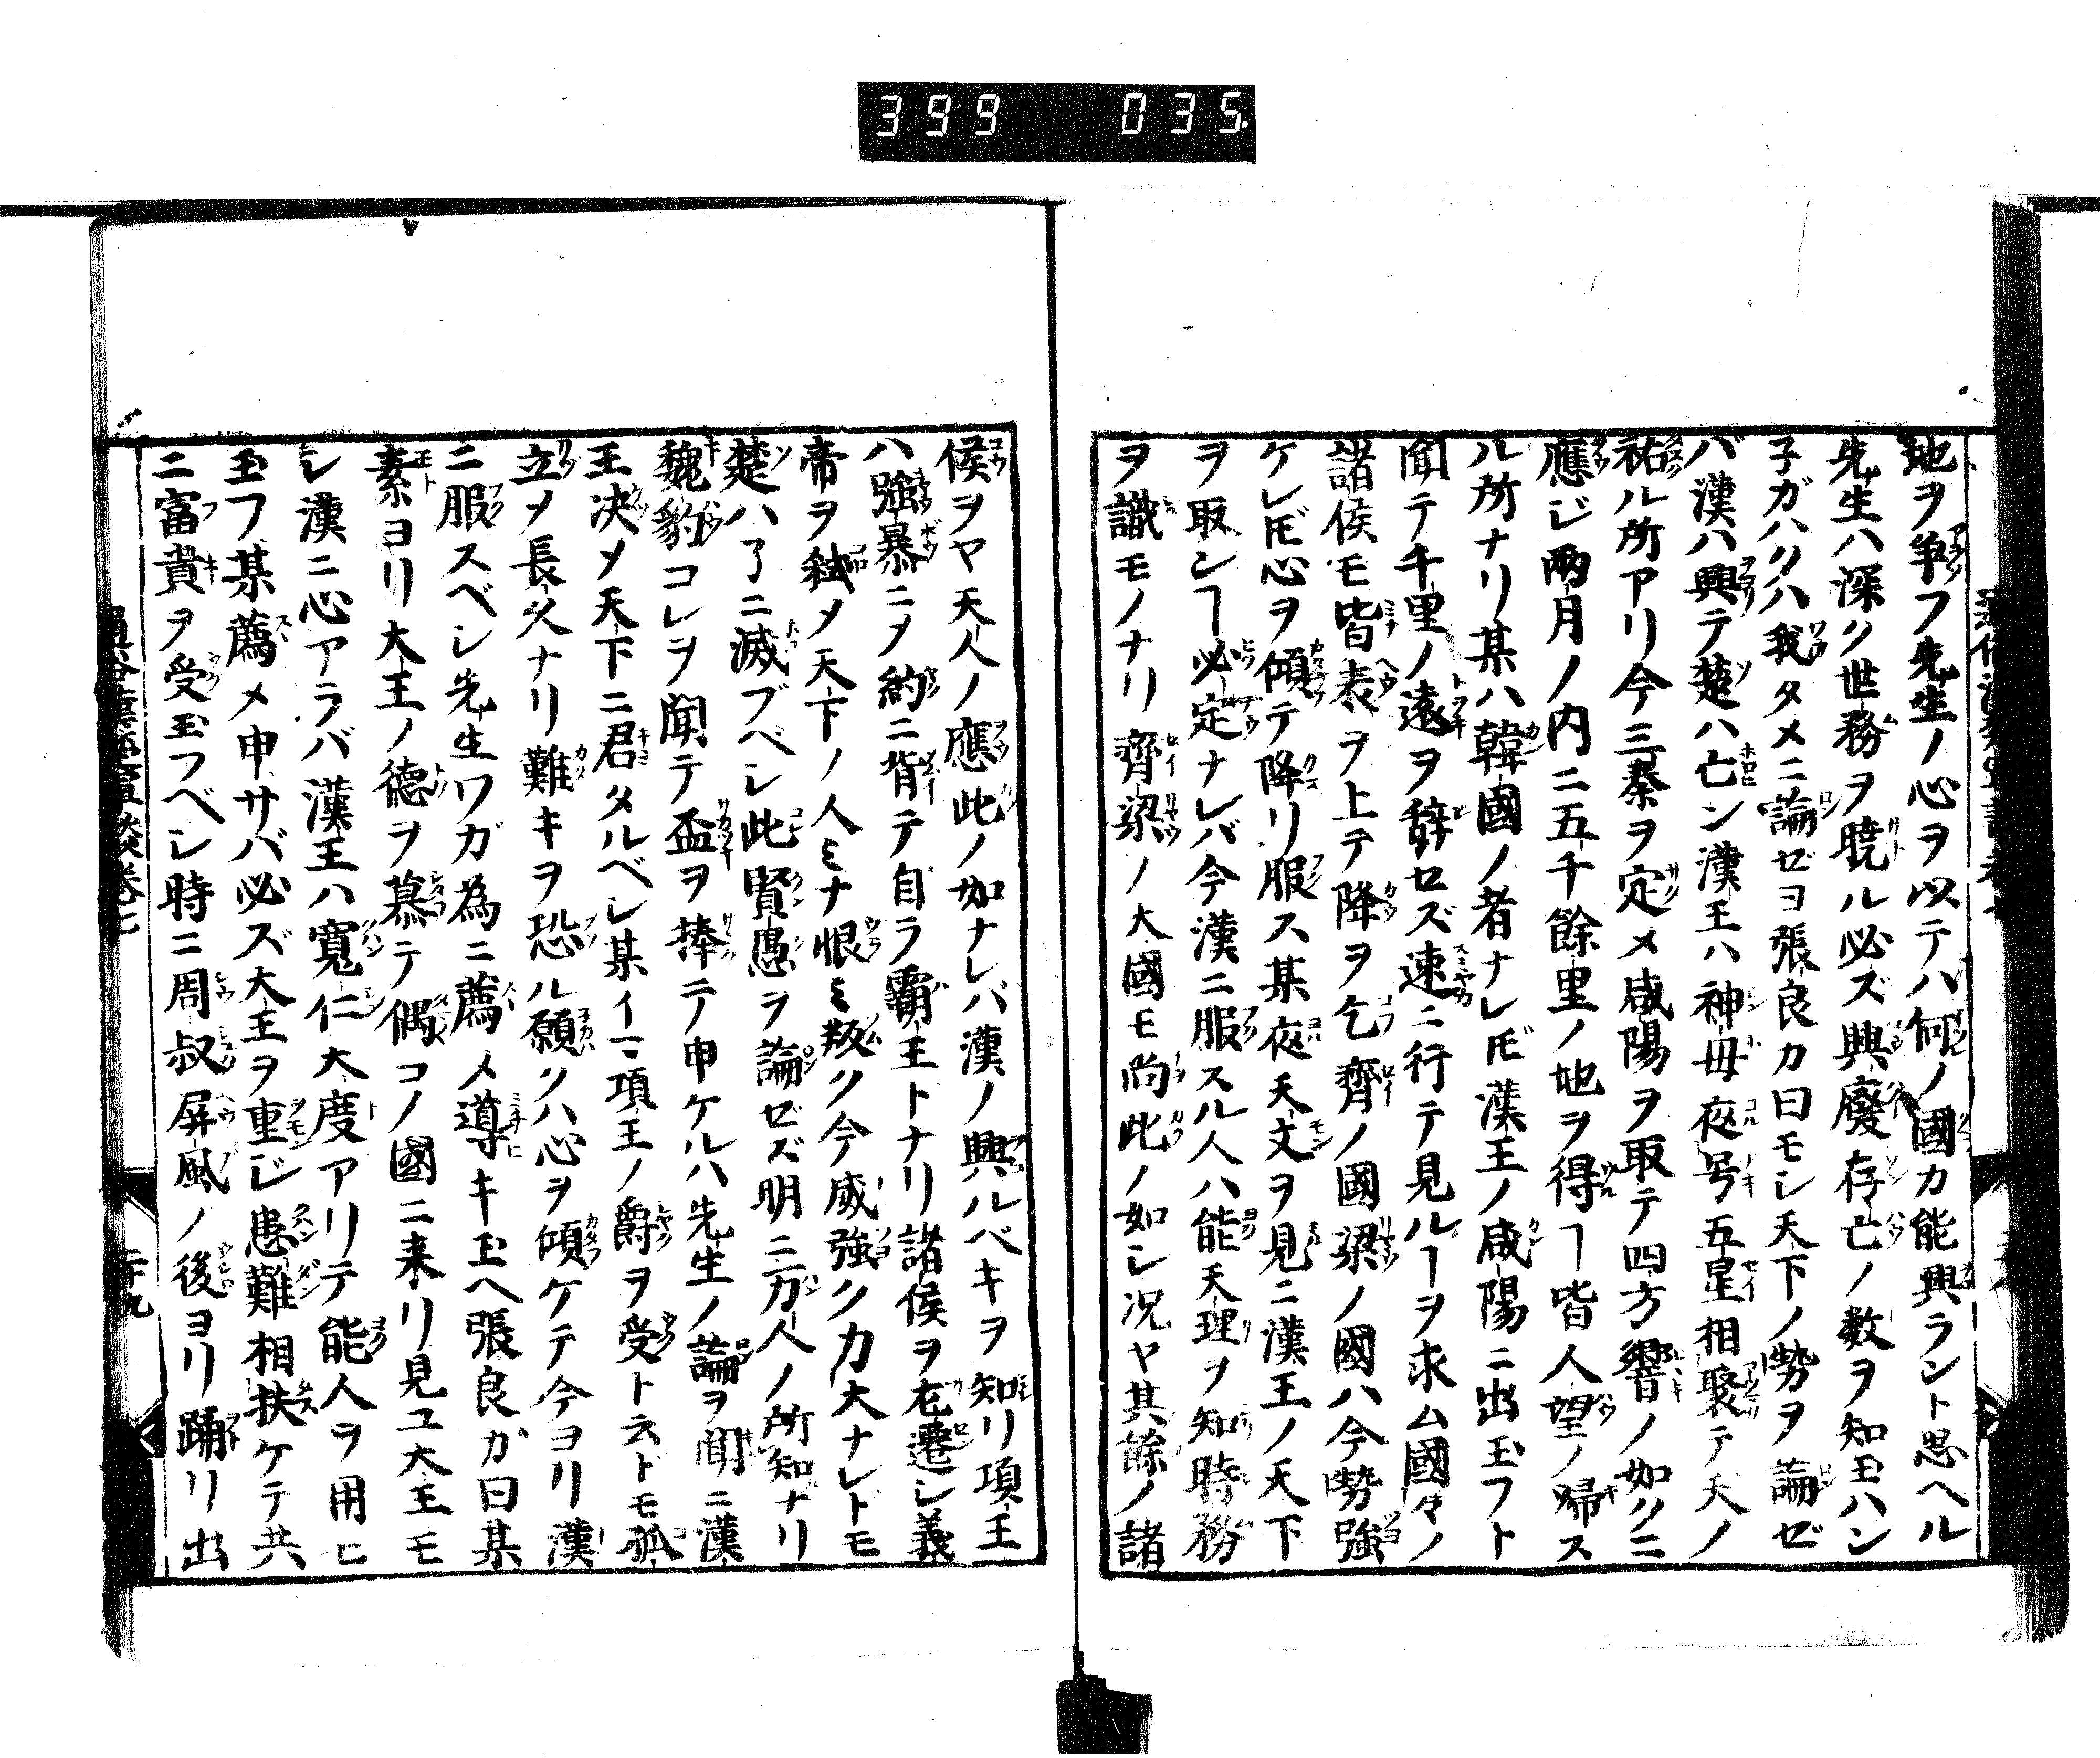 399 035
地ヲ争フ先生ノ心ヲ以テハ何ノ國カ能興ラント思ヘル
先生ハ深ク世務ヲ曉ル必ズ興廢存亡ノ数ヲ知玉ハン
子ガハクハ我タメニ論ゼヨ張良カ曰モシ天下ノ勢ヲ論ゼ
バ漢ハ興テ楚ハ亡ン漢王ハ神母夜号五星相聚テ天ノ
祐ル所アリ今三秦ヲ定メ咸陽ヲ取テ四方響ノ如クニ
應ジ兩月ノ内ニ五千餘里ノ地ヲ得ヿ皆人望ノ帰ス
ル所ナリ某ハ韓國ノ者ナレ𪜈漢王ノ咸陽ニ出玉フト
聞テ千里ノ遠ヲ辞セズ速ニ行テ見ルヿヲ求ム國々ノ
諸侯モ皆表ヲ上テ降ヲ乞齊ノ國梁ノ國ハ今勢強
ケレ𪜈心ヲ傾テ降リ服ス某夜天文ヲ見ニ漢王ノ天下
ヲ取ンヿ必定ナレバ今漢ニ服スル人ハ能天理ヲ知時務
ヲ識モノナリ齊梁ノ大國モ尚此ノ如シ況ヤ其餘ノ諸
侯ヲヤ天人ノ應此ノ如ナレバ漢ノ興ルベキヲ知リ項王
ハ強暴ニ〆約ニ背テ自ラ霸王トナリ諸侯ヲ左遷シ義
帝ヲ弑〆天下ノ人ミナ恨ミ叛ク今威強ク力大ナレドモ
楚ハ了ニ滅ブベシ此賢愚ヲ論ゼズ明ニ万人ノ所知ナリ
魏豹コレヲ聞テ盃ヲ捧テ申ケルハ先生ノ論ヲ聞ニ漢
王决〆天下ニ君タルベシ某イマ項王ノ爵ヲ受ト云トモ孤
立〆長久ナリ難キヲ恐ル願クハ心ヲ傾ケテ今ヨリ漢
ニ服スベシ先生ワガ為ニ薦メ導キ玉ヘ張良ガ曰某
素ヨリ大王ノ德ヲ慕テ偶コノ國ニ来リ見ユ大王モ
シ漢ニ心アラバ漢王ハ寛仁大度アリテ能人ヲ用ヒ
玉フ某薦メ申サバ必ズ大王ヲ重ジ患難相扶ケテ共
ニ富貴ヲ受玉フベシ時ニ周叔屏風ノ後ヨリ踊リ出